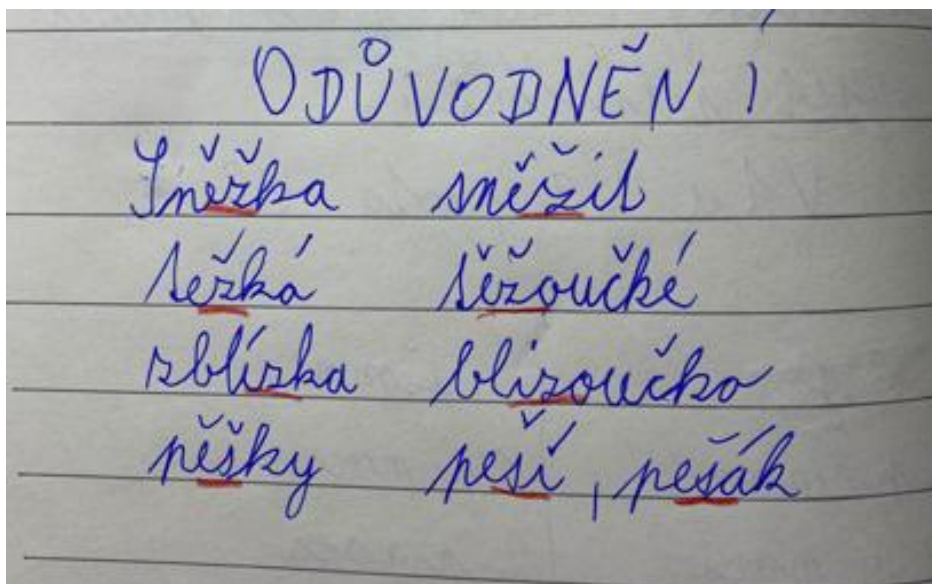 ODŮVODNĚNÍ
Sněžka sněžil
těžká těžoučké
zblízka blizoučko
pěšky peší, pešák